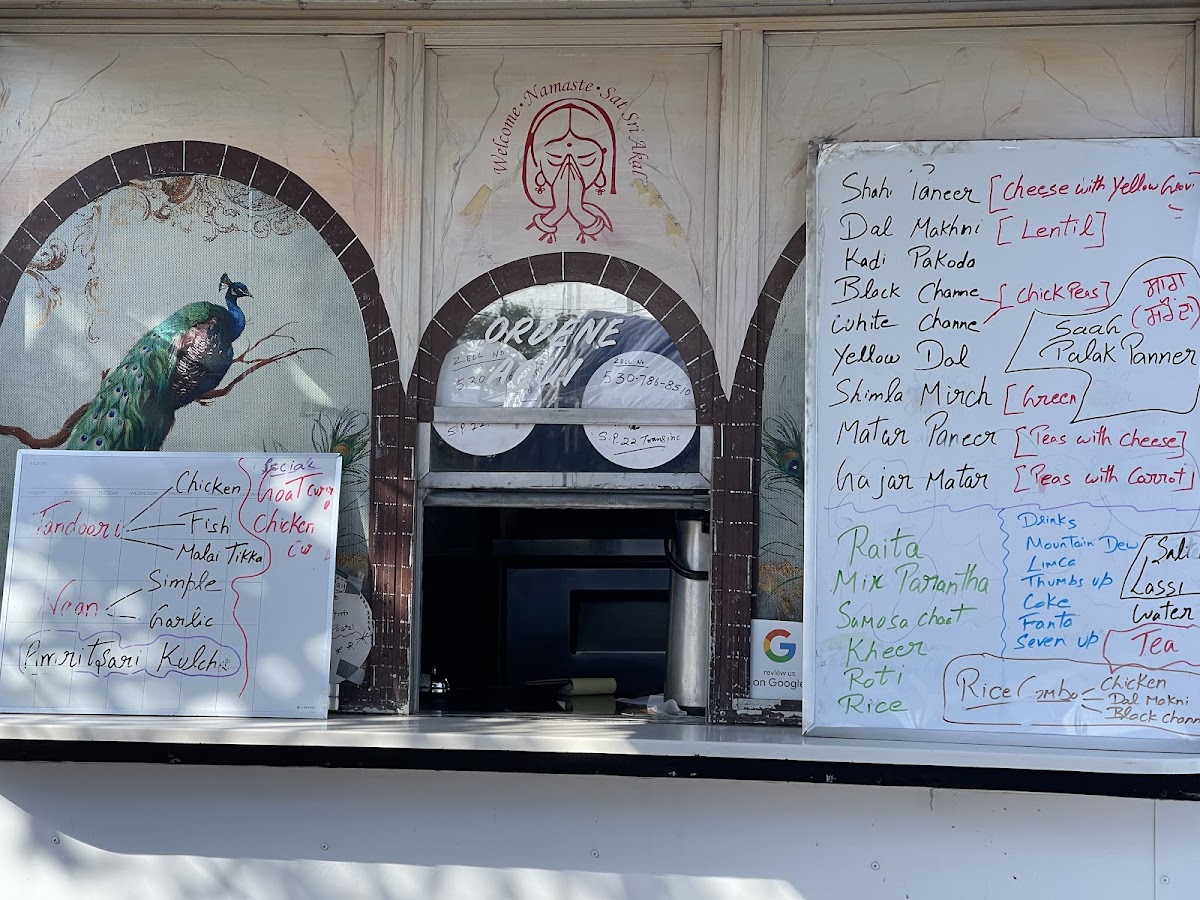 Welcome • Namaste • Sat Sri Akal
ORDENE
ZELL NO.
530-7
S.P. 22
ZELL NO.
530-786-8510
S.P. 22 Trans inc
MONTH
SUNDAY MONDAY TUESDAY WEDNESDAY
Tandoori
Chicken
Fish
Malai Tikka
Naan
Simple
Garlic
Amritsari Kulch
Goat Curry
Chicken
review us
on Google
Shahi Paneer [Cheese with Yellow
Dal Makhni [Lentil]
Kadi Pakoda
Black Channe
White Channe
[ChickPeas]
ਸਾਗ
Saag
Palak Panner
Yellow Dal
Shimla Mirch [Green
Matar Paneer [Peas with Cheese]
Gajar Matar [Peas with Carrot]
Raita
Mix Parantha
Samosa Chaat
Kheer
Roti
Rice
Drinks
Mountain Dew
Limca
Thumbs up
Coke
Fanta
Seven up
Lassi
Water
Tea
Rice Combo
Chicken
Dal Makni
Black Chann